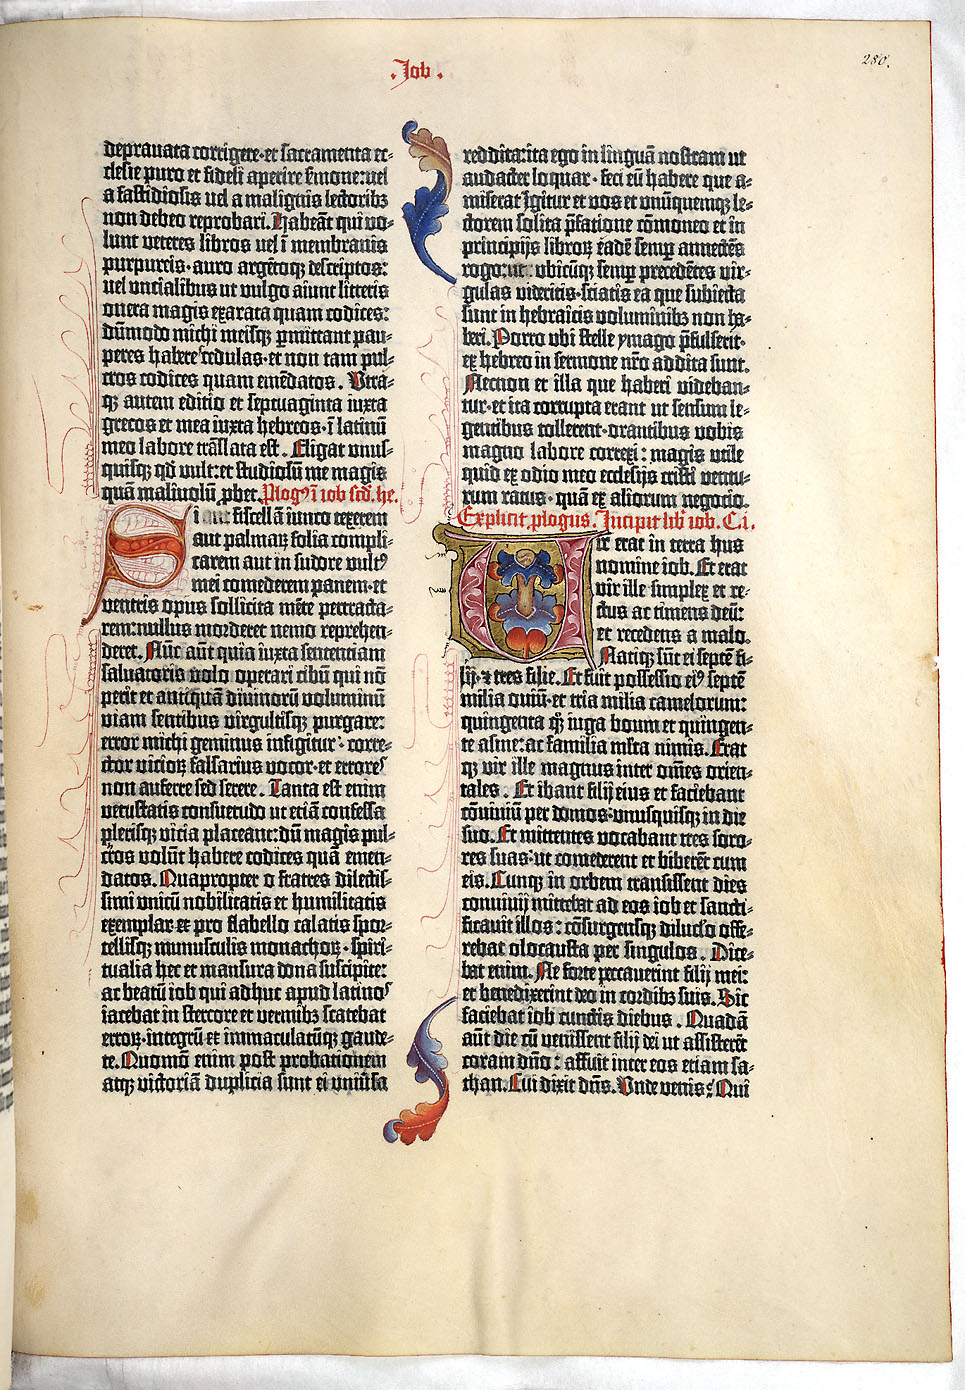 .Job.
280.
deprauata corrigere·et sacramenta ec⸗
clesie puro et fideli aperire s̄mone:uel
a fastidiosis uel a malignis lectoribꝫ
non debeo reprobari. Habeāt qui vo⸗
lunt veteres libros uel ī membranis
purpureis·auro argētoqꝫ descriptos:
uel vncialibus ut vulgo aiunt litteris
onera magis exarata quam codices:
dūmodo michi meisqꝫ ꝑmittant pau⸗
peres habere cedulas·et non tam pul⸗
cros codices quam emēdatos. Vtra⸗
qꝫ autem editio et septuaginta iuxta
grecos et mea iuxta hebreos·ī latinū
meo labore trāslata est. Eligat vnus⸗
quisqꝫ qd̄ vult:et studiosū me magis
quā maliuolū ꝓbet. Plogꝰ ī iob scd̄. he.
Si aut fiscellā iunco texerem
aut palmaꝝ folia compli⸗
carem aut in sudore vultꝰ
mei comederem panem·et
ventris opus sollicita mēte pertracta⸗
rem:nullus morderet nemo reprehen⸗
deret. Nūc aūt quia iuxta sententiam
saluatoris volo operari cibū qui nō
perit et antiquā diuinorū voluminū
viam sentibus virgultisqꝫ purgare:
error michi geminus infigitur· corre⸗
ctor vicioꝝ falsarius vocor·et errores
non auferre sed serere. Tanta est enim
vetustatis consuetudo ut etiā confessa
plerisqꝫ vicia placeant:dū magis pul⸗
cros volūt habere codices quā emen⸗
datos. Quapropter o fratres dilectis⸗
simi vnicū nobilitatis et humilitatis
exemplar et pro flabello calatis spor⸗
tellisqꝫ munusculis monachoꝝ·spiri⸗
tualia hec et mansura dona suscipite:
ac beatū iob qui adhuc apud latinos
iacebat in stercore et vermibꝫ scatebat
erroꝝ·integrū et immaculatūqꝫ gaude⸗
te. Quomō enim post probationem
atqꝫ victoriā duplicia sunt ei vniu̇sa
reddita:ita ego in linguā nostram ut
audacter loquar· feci eū habere que a⸗
miserat Igitur et vos et vnūquemqꝫ le⸗
ctorem solita p̄fatione cōmoneo et in
principijs libroꝝ eadē semꝑ annectēs
rogo:ut vbicūqꝫ semꝑ precedētes vir⸗
gulas videritis·sciatis ea que subiecta
sunt in hebraicis voluminibꝫ non ha⸗
beri. Porro vbi stelle ymago p̄fulserit·
ex hebreo in sermone nr̄o addita sunt.
Necnon et illa que haberi videban⸗
tur·et ita corrupta erant ut sensum le⸗
gentibus tollerent·orantibus vobis
magno labore correxi: magis vtile
quid ex odio meo ecclesijs cristi ventu⸗
rum ratus· quā ex aliorum negocio.
Explicit ꝓlogus. Incipit lib̄ iob. C.i.
Vir erat in terra hus
nomine iob. Et erat
vir ille simplex et re⸗
ctus ac timens deū:
et recedens a malo.
Natiqꝫ sūt ei septē fi⸗
lij·⁊ tres filie. Et fuit possessio eiꝰ septē
milia ouiū·et tria milia camelorum:
quingenta qꝫ iuga boum et quingen⸗
te asine:ac familia ml̄ta nimis. Erat
qꝫ vir ille magnus inter om̄es orien⸗
tales. Et ibant filij eius et faciebant
cōuiuiū per domos·vnusquisqꝫ in die
suo. Et mittentes vocabant tres soro⸗
res suas:ut comederent et biberēt cum
eis. Cunqꝫ in orbem transissent dies
conuiuij mittebat ad eos iob et sancti⸗
ficauit illos: cōsurgensqꝫ diluclo offe⸗
rebat olocausta per singulos. Dice⸗
bat enim. Ne forte peccauerint filij mei:
et benedixerint deo in cordibꝫ suis. Sic
faciebat iob cunctis diebus. Quadā
aūt die cū venissent filij dei ut assisterēt
coram dn̄o: affuit inter eos etiam sa⸗
than. Cui dixit dn̄s. Vnde venis? Qui